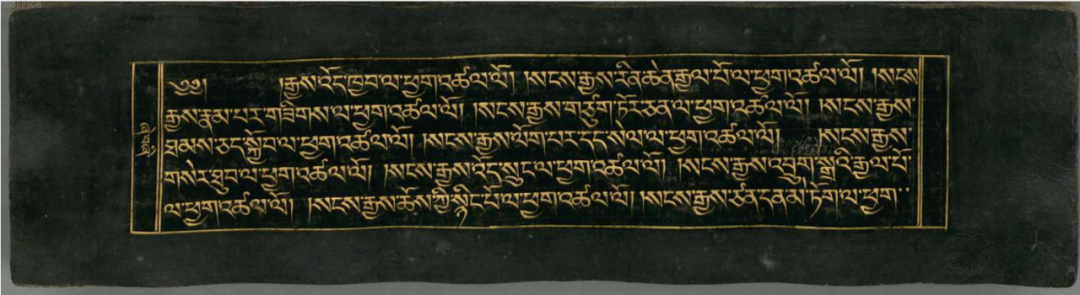 ༄༅། །རྒྱས་འོད་ཁྱབ་ལ་ཕྱག་འཚལ་ལོ། །སངས་རྒྱས་རིན་ཆེན་རྒྱལ་པོ་ལ་ཕྱག་འཚལ་ལོ། །སངས
རྒྱས་རྣམ་པར་གཟིགས་ལ་ཕྱག་འཚལ་ལོ། །སངས་རྒྱས་གཙུག་ཏོར་ཅན་ལ་ཕྱག་འཚལ་ལོ། །སངས་རྒྱས་
ཐམས་ཅད་སྐྱོབ་ལ་ཕྱག་འཚལ་ལོ། །སངས་རྒྱས་ལོག་པར་དད་སེལ་ལ་ཕྱག་འཚལ་ལོ། །སངས་རྒྱས་
གསེར་ཐུབ་ལ་ཕྱག་འཚལ་ལོ། །སངས་རྒྱས་འོད་སྲུང་ལ་ཕྱག་འཚལ་ལོ། །སངས་རྒྱས་འབྲུག་སྒྲའི་རྒྱལ་པོ་
ལ་ཕྱག་འཚལ་ལོ། །སངས་རྒྱས་ཆོས་ཀྱི་སྙིང་པོ་ལ་ཕྱག་འཚལ་ལོ། །སངས་རྒྱས་ཙནདན་མེ་ཏོག་ལ་ཕྱག་